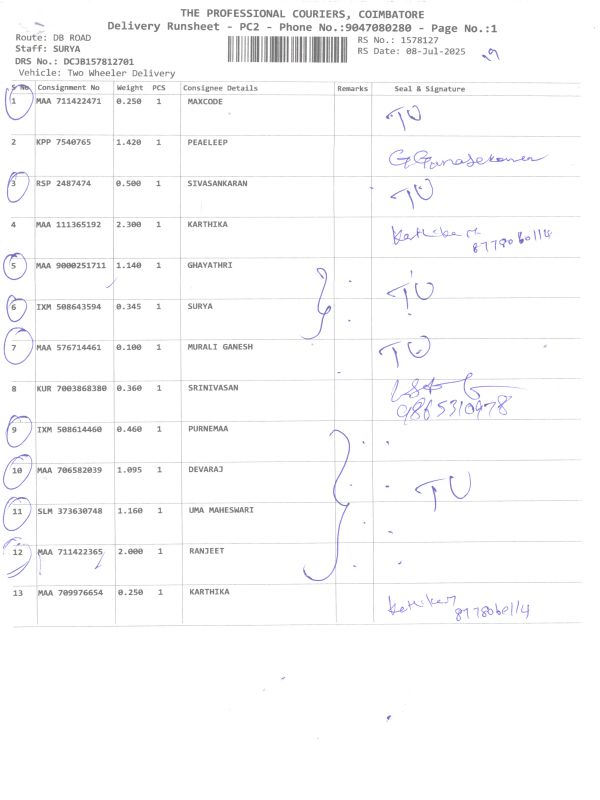 THE PROFESSIONAL COURIERS, COIMBATORE
Delivery Runsheet - PC2 - Phone No.:9047080280 - Page No.:1
Route: DB ROAD
Staff: SURYA
DRS No.: DCJB157812701
Vehicle: Two Wheeler Delivery
RS No.: 1578127
RS Date: 08-Jul-2025
S No. Consignment No Weight PCS Consignee Details Remarks Seal & Signature
1 MAA 711422471 0.250 1 MAXCODE TU
2 KPP 7540765 1.420 1 PEAELEEP G Gunasekaran
3 RSP 2487474 0.500 1 SIVASANKARAN TU
4 MAA 111365192 2.300 1 KARTHIKA Karthika
8778060114
5 MAA 9000251711 1.140 1 GHAYATHRI TU
6 IXM 508643594 0.345 1 SURYA
7 MAA 576714461 0.100 1 MURALI GANESH TU
8 KUR 7003868380 0.360 1 SRINIVASAN
9865310978
9 IXM 508614460 0.460 1 PURNEMAA
10 MAA 706582039 1.095 1 DEVARAJ TU
11 SLM 373630748 1.160 1 UMA MAHESWARI
12 MAA 711422365 2.000 1 RANJEET
13 MAA 709976654 0.250 1 KARTHIKA
8778060114